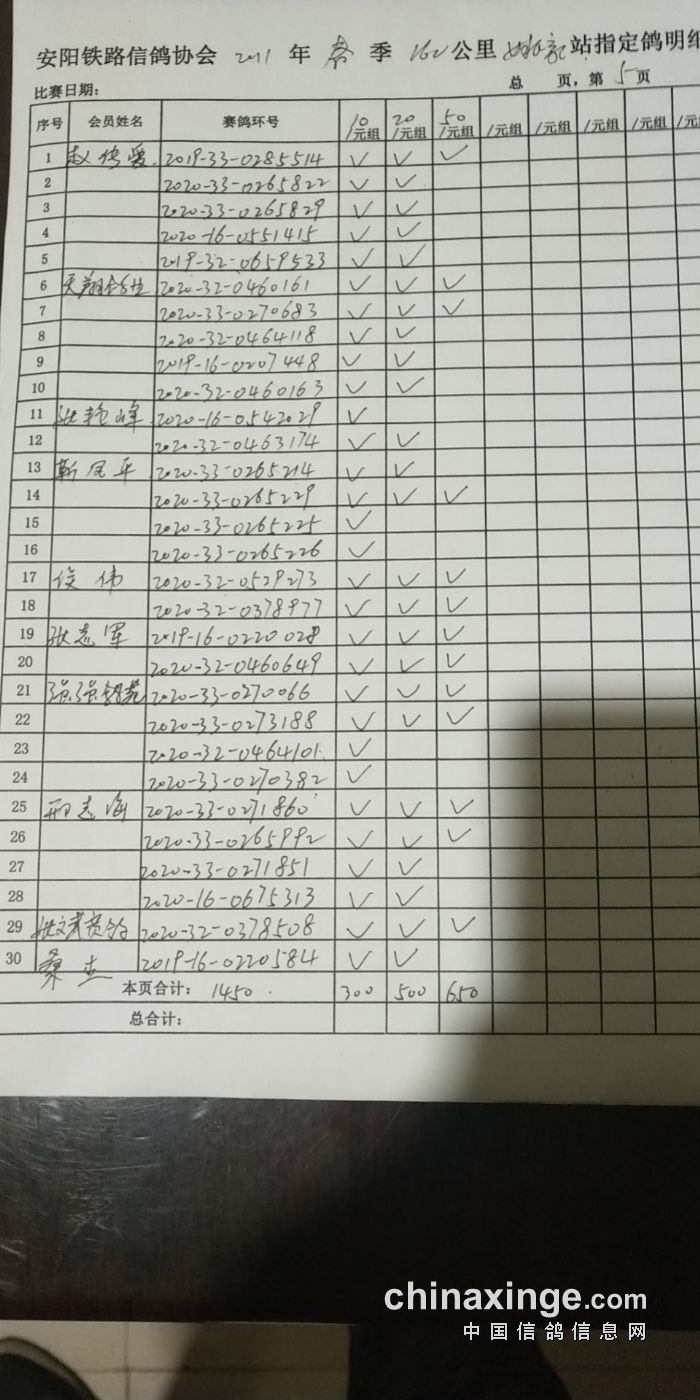 安阳铁路信鸽协会 2021 年 春 季 160 公里 站指定鸽明细
比赛日期： 总 页，第 5 页
序号 会员姓名 赛鸽环号 10/元组 20/元组 50/元组 /元组 /元组 /元组 /元组
1 赵传爱 2019-33-0285514 ✓ ✓ ✓
2 2020-33-0265822 ✓ ✓
3 2020-33-0265829 ✓ ✓
4 2020-16-0551415 ✓ ✓
5 2019-32-0659533 ✓ ✓
6 天翔 2020-32-0460161 ✓ ✓ ✓
7 2020-33-0270683 ✓ ✓ ✓
8 2020-32-0464118 ✓ ✓
9 2019-16-0207448 ✓ ✓
10 2020-32-0460163 ✓ ✓
11 张艳峰 2020-16-0542029 ✓
12 2020-32-0463174 ✓ ✓
13 靳凤平 2020-33-0265214 ✓ ✓
14 2020-33-0265229 ✓ ✓ ✓
15 2020-33-0265225 ✓
16 2020-33-0265226 ✓
17 伟 2020-32-0529273 ✓ ✓ ✓
18 2020-32-0378977 ✓ ✓ ✓
19 张志军 2019-16-0220028 ✓ ✓ ✓
20 2020-32-0460649 ✓ ✓ ✓
21 强强鸽苑 2020-33-0270066 ✓ ✓ ✓
22 2020-33-0273188 ✓ ✓ ✓
23 2020-32-0464101 ✓
24 2020-33-0270382 ✓
25 邢志海 2020-33-0271860 ✓ ✓ ✓
26 2020-33-0265992 ✓ ✓ ✓
27 2020-33-0271851 ✓ ✓
28 2020-16-0675313 ✓ ✓
29 2020-32-0378508 ✓ ✓ ✓
30 桑杰 2019-16-0220584 ✓ ✓
本页合计： 1450 300 500 650
总合计：
chinaxinge.com
中国信鸽信息网